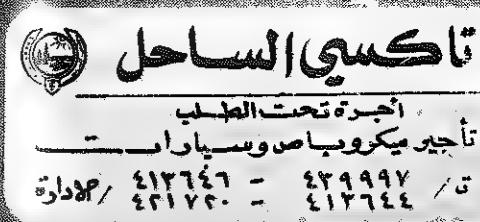 تاكسي الساحل
أجرة تحت الطلب
تأجير ميكروباص وسيارات
ت / ٤٣٩٩٩٧ - ٤١٣٦٤٦ / الادارة
٤١٣٦٤٤ - ٤٢١٧٢٠